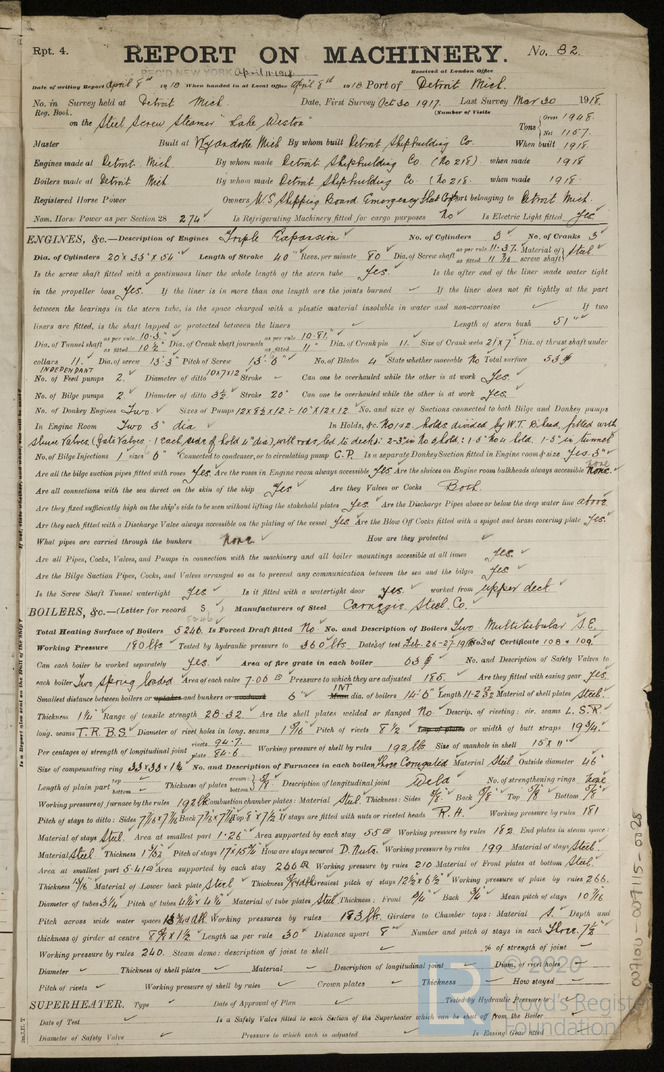 Rpt. 4.
REPORT ON MACHINERY. No. 82.
REC'D NEW YORK April 11-1918
Received at London Office
Date of writing Report April 8th 1918 When handed in at Local Office April 8th 1918 Port of Detroit Mich.
No. in Survey held at Detroit Mich. Date, First Survey Oct 30 1917. Last Survey Mar 30 1918.
Reg. Book. (Number of Visits
on the Steel Screw Steamer "Lake Weston" Tons Gross 1948. Net 1157.
Master Built at Wyandotte Mich By whom built Detroit Shipbuilding Co. When built 1918.
Engines made at Detroit Mich. By whom made Detroit Shipbuilding Co (No 218). when made 1918
Boilers made at Detroit Mich. By whom made Detroit Shipbuilding Co (No 218. when made 1918.
Registered Horse Power Owners U.S Shipping Board Emergency Fleet Corp Port belonging to Detroit Mich.
Nom. Horse Power as per Section 28 274 Is Refrigerating Machinery fitted for cargo purposes No Is Electric Light fitted Yes
ENGINES, &c.—Description of Engines Triple Expansion No. of Cylinders 3 No. of Cranks 3
Dia. of Cylinders 20" x 33" x 54" Length of Stroke 40" Revs. per minute 80 Dia. of Screw shaft as per rule 11.37. as fitted 11 7/16 Material of screw shaft Steel
Is the screw shaft fitted with a continuous liner the whole length of the stern tube Yes. Is the after end of the liner made water tight
in the propeller boss Yes. If the liner is in more than one length are the joints burned ✓ If the liner does not fit tightly at the part
between the bearings in the stern tube, is the space charged with a plastic material insoluble in water and non-corrosive ✓ If two
liners are fitted, is the shaft lapped or protected between the liners ✓ Length of stern bush 51"
Dia. of Tunnel shaft as per rule 10.3" as fitted 10 1/2" Dia. of Crank shaft journals as per rule 10.81" as fitted 11" Dia. of Crank pin 11. Size of Crank webs 21" x 7" Dia. of thrust shaft under
collars 11. Dia. of screw 13'.3" Pitch of Screw 13'.6" No. of Blades 4 State whether moveable No Total surface 53 ft
INDEPENDANT
No. of Feed pumps 2. Diameter of ditto 10x7x12 Stroke Can one be overhauled while the other is at work Yes.
No. of Bilge pumps 2. Diameter of ditto 3 1/2 Stroke 20" Can one be overhauled while the other is at work Yes.
No. of Donkey Engines Two. Sizes of Pumps 12 x 8 1/2 x 12 : 10" x 12 x 12 No. and size of Suctions connected to both Bilge and Donkey pumps
In Engine Room Two 3" dia In Holds, &c. No 1 & 2 holds divided by W.T. B.head, fitted with
sluice Valves (Gate Valves.
No. of Bilge Injections 1 sizes 6" Connected to condenser, or to circulating pump C.P. Is a separate Donkey Suction fitted in Engine room & size Yes. 3"
Are all the bilge suction pipes fitted with roses Yes. Are the roses in Engine room always accessible Yes Are the sluices on Engine room bulkheads always accessible None.
Are all connections with the sea direct on the skin of the ship Yes Are they Valves or Cocks Both.
Are they fixed sufficiently high on the ship's side to be seen without lifting the stokehold plates Yes. Are the Discharge Pipes above or below the deep water line above
Are they each fitted with a Discharge Valve always accessible on the plating of the vessel Yes Are the Blow Off Cocks fitted with a spigot and brass covering plate Yes.
What pipes are carried through the bunkers None. How are they protected ✓
Are all Pipes, Cocks, Valves, and Pumps in connection with the machinery and all boiler mountings accessible at all times Yes.
Are the Bilge Suction Pipes, Cocks, and Valves arranged so as to prevent any communication between the sea and the bilges Yes.
Is the Screw Shaft Tunnel watertight Yes Is it fitted with a watertight door Yes. worked from upper deck
BOILERS, &c.—(Letter for record S. Manufacturers of Steel Carnegie Steel Co.
Total Heating Surface of Boilers 5246. Is Forced Draft fitted No No. and Description of Boilers Two Multitubular S.E.
Working Pressure 180 lbs Tested by hydraulic pressure to 360 lbs. Date of test Feb. 26-27-1918 No. of Certificate 108 & 109.
Can each boiler be worked separately Yes. Area of fire grate in each boiler 63 ft No. and Description of Safety Valves to
each boiler Two Spring loaded Area of each valve 7.06 Pressure to which they are adjusted 185. Are they fitted with easing gear Yes
Smallest distance between boilers or uptakes and bunkers or woodwork 6" INT Mean dia. of boilers 14'.6" Length 11-2 3/2 Material of shell plates Steel
Thickness 1 1/2" Range of tensile strength 28.32. Are the shell plates welded or flanged No Descrip. of riveting: cir. seams L.S.R
long. seams T.R.B.S. Diameter of rivet holes in long. seams 1 3/16 Pitch of rivets 8 1/2 Lap of plates or width of butt straps 19 3/4.
Per centages of strength of longitudinal joint rivets 94.7. plate 84.6. Working pressure of shell by rules 192 lb Size of manhole in shell 15" x 11"
Size of compensating ring 33 x 33 x 1 1/2 No. and Description of Furnaces in each boiler Three Corrugated Material Steel Outside diameter 46"
Length of plain part top bottom Thickness of plates crown bottom Description of longitudinal joint Weld No. of strengthening rings None
Working pressure of furnace by the rules 192 lb Combustion chamber plates: Material Steel. Thickness: Sides 5/8. Back 5/8 Top 5/8 Bottom 5/8
Pitch of stays to ditto: Sides Back Top If stays are fitted with nuts or riveted heads R.H. Working pressure by rules 181
Material of stays Steel. Area at smallest part 1.26. Area supported by each stay 55 Working pressure by rules 182 End plates in steam space:
Material Steel Thickness 1 1/32 Pitch of stays 17 x 15 1/2 How are stays secured D. Nuts. Working pressure by rules 199 Material of stays Steel.
Area at smallest part 5.41 Area supported by each stay 266 Working pressure by rules 210 Material of Front plates at bottom Steel
Thickness Material of Lower back plate Steel Thickness Greatest pitch of stays 12 1/2 x 6 1/2 Working pressure of plate by rules 266.
Diameter of tubes 3 1/4 Pitch of tubes 4 1/2 x 4 1/2 Material of tube plates Steel Thickness: Front Back 3/4 Mean pitch of stays 10 7/16
Pitch across wide water spaces Working pressures by rules 183 lb. Girders to Chamber tops: Material S. Depth and
thickness of girder at centre 8 5/8 x 1 1/2 Length as per rule 30" Distance apart 8" Number and pitch of stays in each Three 7 1/2
Working pressure by rules 240. Steam dome: description of joint to shell ✓ % of strength of joint ✓
Diameter ✓ Thickness of shell plates ✓ Material ✓ Description of longitudinal joint ✓ Diam. of rivet holes
Pitch of rivets ✓ Working pressure of shell by rules ✓ Crown plates ✓ Thickness ✓ How stayed ✓
SUPERHEATER. Type ✓ Date of Approval of Plan ✓ Tested by Hydraulic Pressure to
Date of Test ✓ Is a Safety Valve fitted to each Section of the Superheater which can be shut off from the Boiler
Diameter of Safety Valve ✓ Pressure to which each is adjusted ✓ Is Easing Gear fitted ✓
009100-009115-0028
© 2020
LR
Lloyd's Register
Foundation